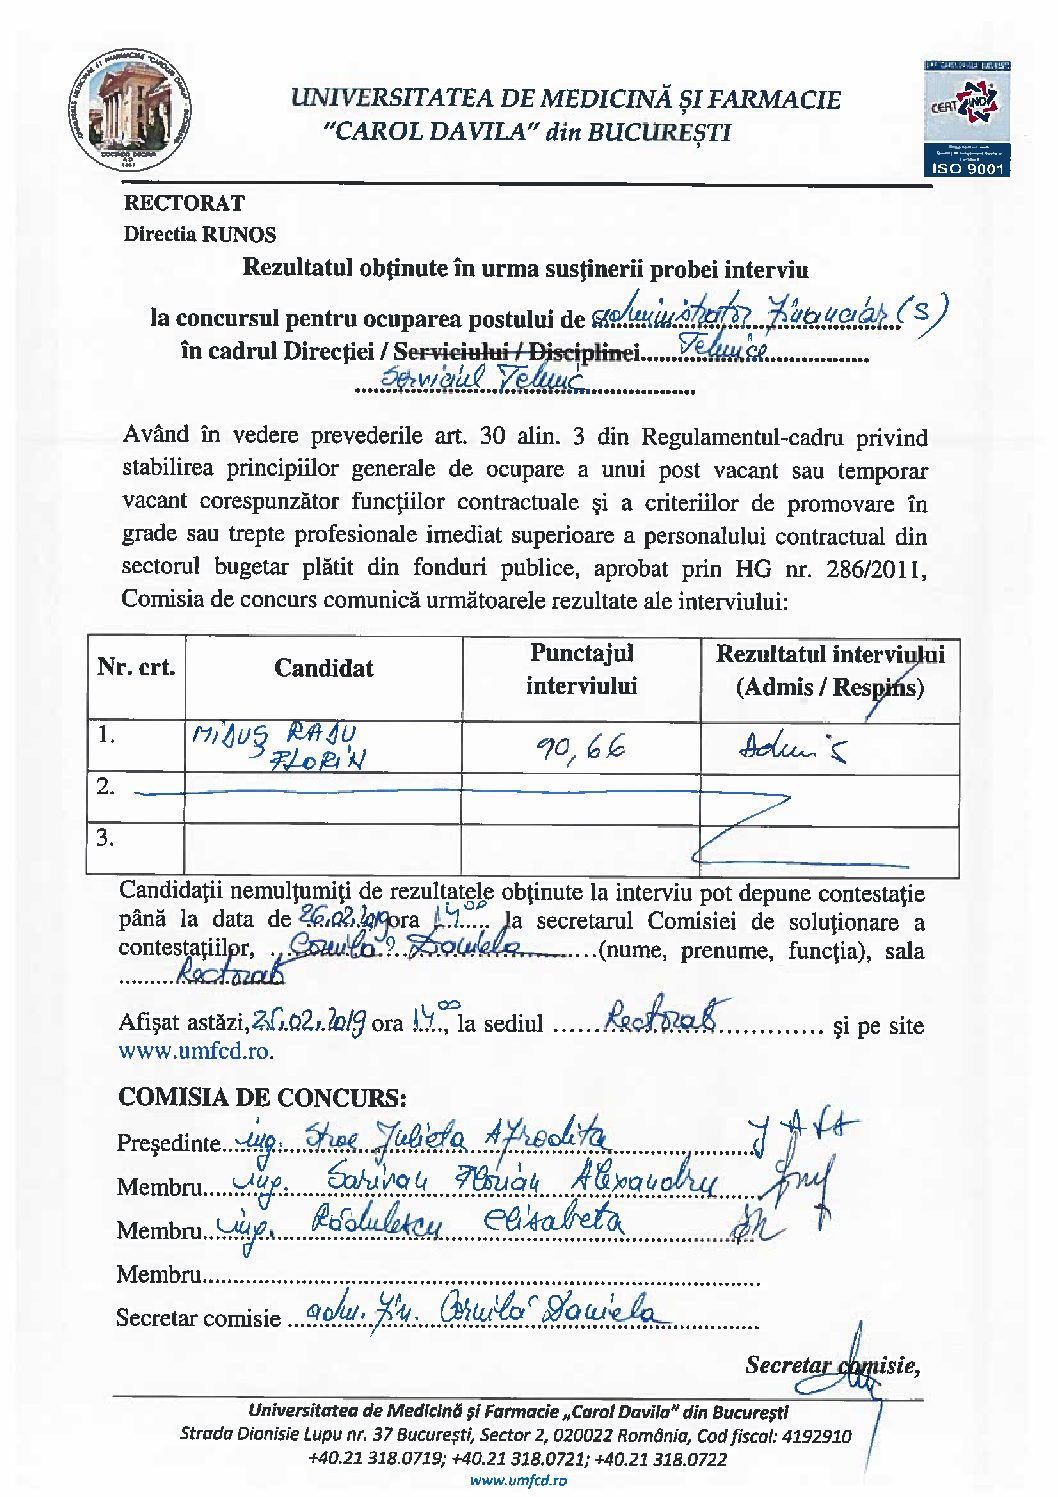 UNIVERSITATEA DE MEDICINĂ ȘI FARMACIE
"CAROL DAVILA" din BUCUREȘTI
CERT IND
ISO 9001
RECTORAT
Directia RUNOS
Rezultatul obținute în urma susținerii probei interviu
la concursul pentru ocuparea postului de administrator financiar (S)
în cadrul Direcției / Serviciului / Disciplinei......Tehnice...............
....Serviciul Tehnic...............
Având în vedere prevederile art. 30 alin. 3 din Regulamentul-cadru privind
stabilirea principiilor generale de ocupare a unui post vacant sau temporar
vacant corespunzător funcțiilor contractuale și a criteriilor de promovare în
grade sau trepte profesionale imediat superioare a personalului contractual din
sectorul bugetar plătit din fonduri publice, aprobat prin HG nr. 286/2011,
Comisia de concurs comunică următoarele rezultate ale interviului:
Nr. crt. Candidat Punctajul interviului Rezultatul interviului (Admis / Respins)
1. RADU FLORIN 90,66 Admis
2.
3.
Candidații nemulțumiți de rezultatele obținute la interviu pot depune contestație
până la data de 26.02.2019 ora 14.00 la secretarul Comisiei de soluționare a
contestațiilor, ... Daniela ......(nume, prenume, funcția), sala
.........Rectorat
Afișat astăzi, 25.02.2019 ora 14.00, la sediul ......Rectorat............. și pe site
www.umfcd.ro.
COMISIA DE CONCURS:
Președinte...ing. Stroe Julieta Afrodita..........
Membru.......ing. Florian Alexandru......
Membru...ing. Rădulescu Elisabeta..........
Membru..........................................................
Secretar comisie ...adm. fin. Daniela..........
Secretar comisie,
Universitatea de Medicină și Farmacie „Carol Davila" din București
Strada Dionisie Lupu nr. 37 București, Sector 2, 020022 România, Cod fiscal: 4192910
+40.21 318.0719; +40.21 318.0721; +40.21 318.0722
www.umfcd.ro